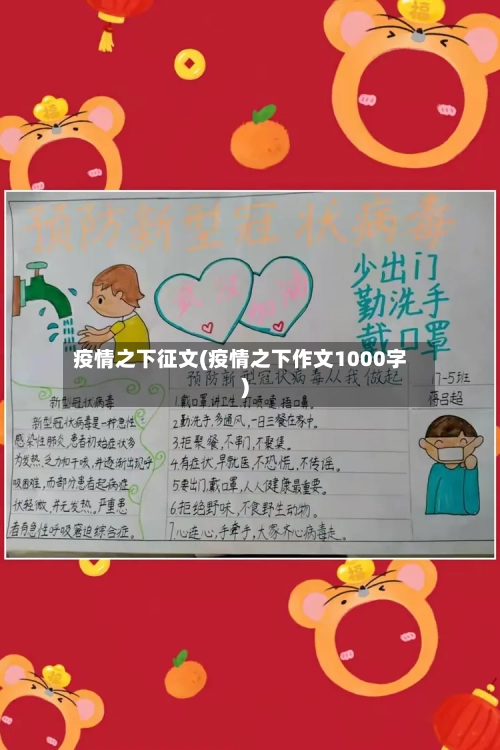 福
福
预防新型冠状病毒
少出门
勤洗手
戴口罩
武汉
加油
疫情之下征文(疫情之下作文1000字
)
预防新型冠状病毒从我做起
17-5班
蒋吕超
新型冠状病毒
新型冠状病毒是一种急性
感染性肺炎,患者初始症状多
为发热,乏力和干咳,并逐渐出现呼
吸困难,而部分患者起病症
状轻微,并无发热,严重患
者有急性呼吸窘迫综合症。
1戴口罩讲卫生,打喷嚏,捂口鼻。
2勤洗手,多通风,一日三餐在家中。
3拒聚餐,不串门,不聚集。
4有症状,早就医,不恐慌,不传谣。
5要出门,戴口罩,人人健康最重要。
6拒绝野味,不食野生动物。
7心连心,手牵手,大家齐心病毒走。
福
福